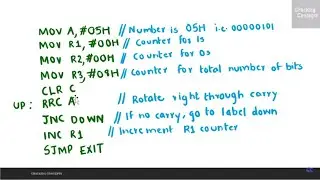 MOV A, #05H // Number is 05H i.e. 00000101
MOV R1, #00H // Counter for 1s
MOV R2, #00H // Counter for 0s
MOV R3, #08H // Counter for total number of bits
CLR C
UP: RRC A // Rotate right through carry
JNC DOWN // If no carry, go to label down
INC R1 // Increment R1 counter
SJMP EXIT